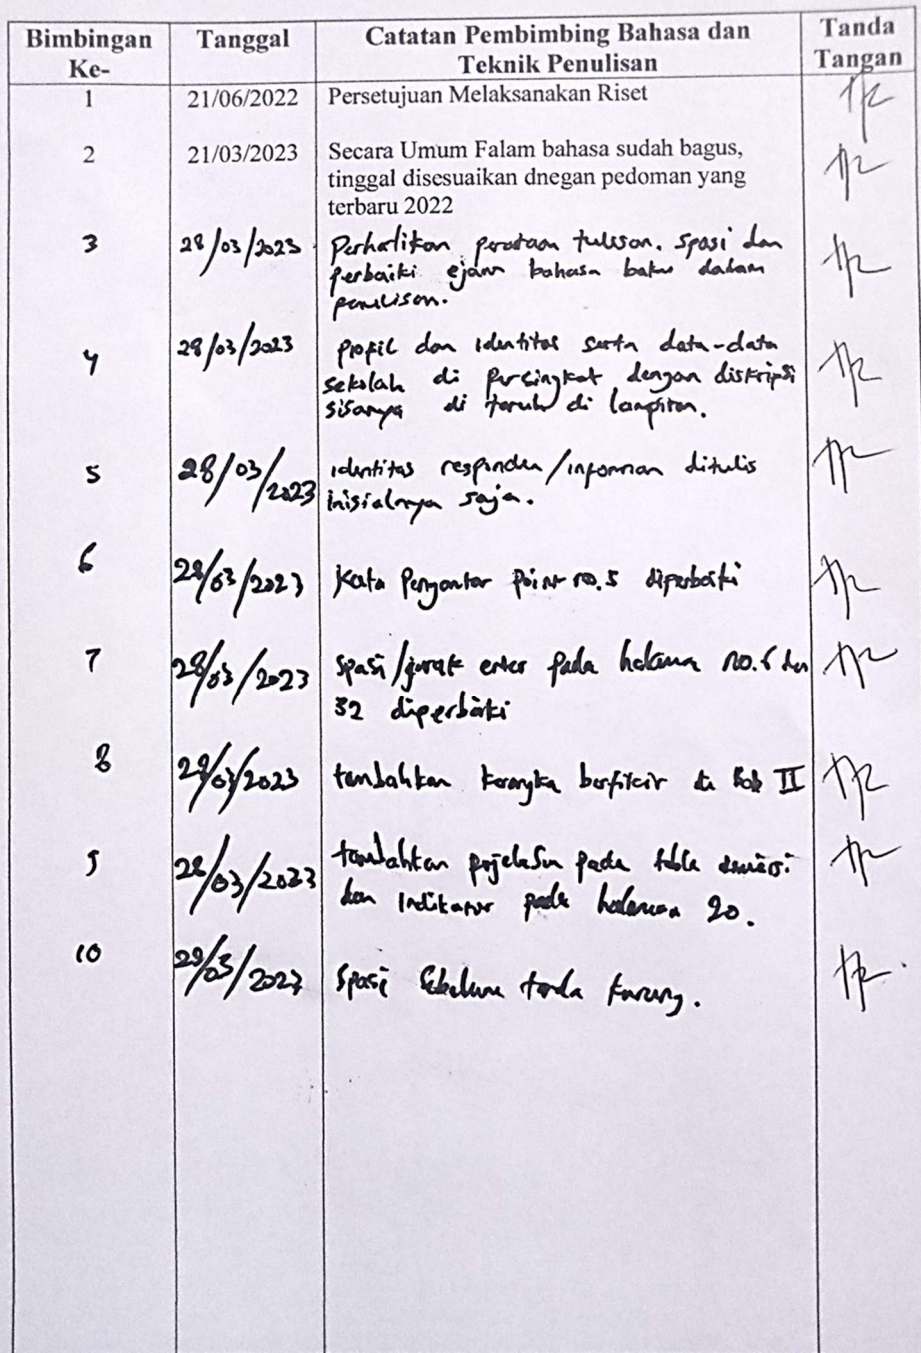 Bimbingan Ke-
Tanggal
Catatan Pembimbing Bahasa dan
Teknik Penulisan
Tanda
Tangan
1 21/06/2022 Persetujuan Melaksanakan Riset
2 21/03/2023 Secara Umum Falam bahasa sudah bagus,
tinggal disesuaikan dnegan pedoman yang
terbaru 2022
3 28/03/2023 Perhatikan perataan tulisan. spasi dan
perbaiki ejaan bahasa baku dalam
penulisan.
4 28/03/2023 profil dan identitas serta data-data
sekolah di persingkat dengan diskripsi
sisanya di taruh di lampiran.
5 28/03/2023 identitas responden/informan ditulis
inisialnya saja.
6 28/03/2023 Kata Pengantar Point no. 5 diperbaiki
7 28/03/2023 Spasi/jarak enter pada halaman no. 6 dan
32 diperbaiki
8 28/03/2023 tambahkan kerangka berfikir di Bab II
9 28/03/2023 tambahkan penjelasan pada table dimensi
dan Indikator pada halaman 20.
10 28/03/2023 Spasi sebelum tanda kurung.